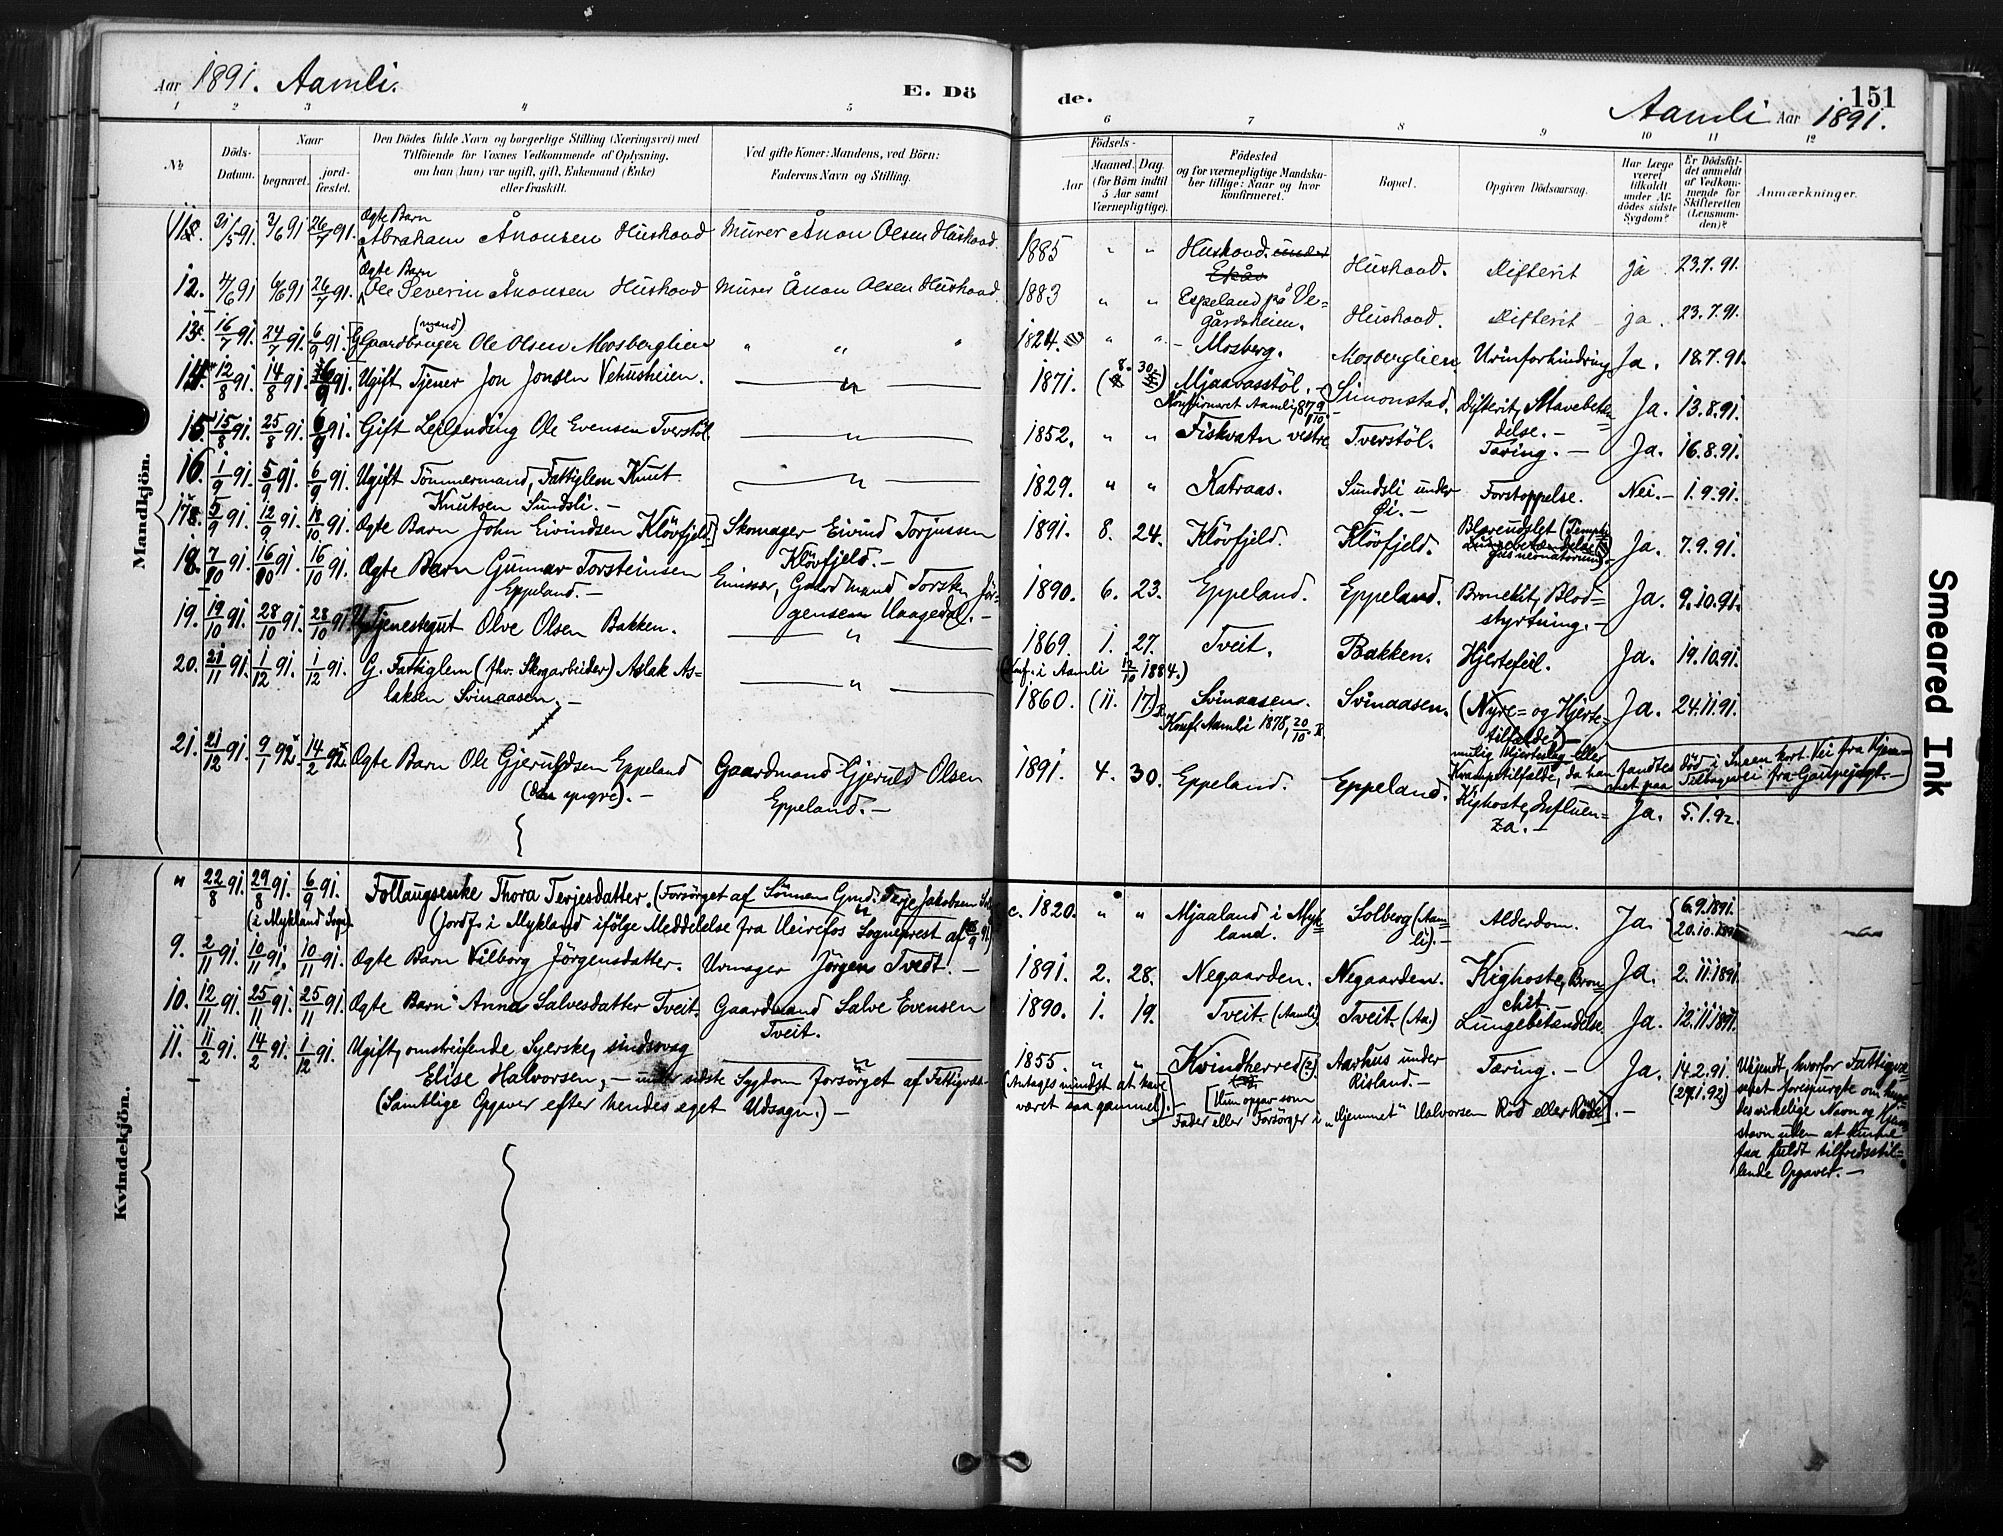 Aar 1891. Aamli. E. Dö
1 2 3 4 5
No. Döds-Datum. Naar begravet. jord-fæstet. Den Dödes fulde Navn og borgerlige Stilling (Næringsvei) med Tilföiende for Voxnes Vedkommende af Oplysning, om han (hun) var ugift, gift, Enkemand (Enke) eller fraskilt. Ved gifte Koner: Mandens, ved Börn: Faderens Navn og Stilling.
Mandkjön.
11. 31/5 91. 3/6 91 26/7 91. Ægte Barn Abraham Ånonsen Huskaad Murer Ånon Olsen Huskaad.
12. 4/6 91 6/6 91 26/7 91. Ægte Barn Ole Severin Ånonsen Huskaad Murer Ånon Olsen Huskaad.
13. 16/7 91. 24/7 91. 6/9 91. Gaardbruger (mand) Ole Olsen Mosberglien " " "
14. 12/8 91. 14/8 91. 6/9 91. Ugift Tjener Jon Jonsen Vehusheien. — " —
15. 15/8 91. 25/8 91. 6/9 91. Gift Leilænding Ole Evensen Tverstöl. — " —
16. 1/9 91. 5/9 91. 6/9 91. Ugift Tömmermand, Fattiglem Knut — " —
Knutsen Sundsli. —
17. 5/9 91. 12/9 91. 18/10 91. Ægte Barn John Eivindsen Klövfjeld. Skomager Eivind Torjussen
Klövfjeld. —
18. 7/10 91. 16/10 91. 16/10 91. Ægte Barn Gunnar Torsteinsen Eppeland. — Emissær, Gaardmand Torsten Jör-
gensen Uaagedal). —
19. 19/10 91. 28/10 91. 28/10 91. Ug. Tjenestegut Olve Olsen Bakken. — " —
20. 21/11 91. 1/12 91. 1/12 91. G. Fattiglem (fhv. Skogarbeider) Aslak As- — " —
laksen Svinaasen. —
21. 21/12 91. 9/1 92. 14/2 92. Ægte Barn Ole Gjeruldsen Eppeland Gaardmand Gjeruld Olsen
(den yngre). — Eppeland. —
Kvindekjön.
" 22/8 91. 29/8 91. 6/9 91. Føllaugsenke Thora Terjesdatter. (Forsörget af Sönnen Gmd. Terje Jakobsen
(i Mykland Sogn) (Jordf. i Mykland ifölge Meddelelse fra Veirefos Sogneprest af
9. 2/11 91. 10/11 91. 10/11 91. Ægte Barn Vilborg Jörgensdatter. Urmager Jörgen Tvedt. —
10. 12/11 91. 25/11 91. 25/11 91. Ægte Barn Anna Salvesdatter Tveit. Gaardmand Salve Evensen
Tveit.
11. 11/2 91. 14/2 91. 1/12 91. Ugift, omstreifende Syerske, sindssvag
Elise Halvorsen, — under sidste Sygdom forsörget af Fattigvæs-
(Samtlige Opgaver efter hendes eget Udsagn.) —
de. 151
Aamli Aar 1891.
6 7 8 9 10 11 12
Födsels- Aar Maaned. Dag. (for Börn indtil 5 Aar samt Værnepligtige). Födested og for værnepligtige Mandskaber tillige: Naar og hvor konfirmeret. Bopæl. Opgiven Dödsaarsag. Har Læge været tilkaldt under Afdödes sidste Sygdom? Er Dödsfaldet anmeldt af Vedkommende for Skifteretten (Lensmanden)? Anmærkninger.
1885 " " Huskaad. under Ekås Huskaad. Difterit ja 23.7.91.
1883 " " Espeland på Ve-
gårdsheien. Huskaad. Difterit ja. 23.7.91.
1824. " " Mosberg. Mosberglien Urinforhindring Ja. 18.7.91.
1871. (8. 30.) Mjaavasstöl. Simonstad. Difterit, Mavebetæn- Ja. 13.8.91.
Konfirmeret Aamli, 1879/10. delse. —
1852. " " Fiskvatn vestre Tverstöl. Tæring. — Ja. 16.8.91.
1829. " " Katraas. Sundsli under Forstoppelse. Nei. — 1.9.91.
Öi. —
1891. 8. 24. Klövfjeld. Klövfjeld. Blæreudslet (Pemphi-
gus neonatorum). Ja. 7.9.91.
1890. 6. 23. Eppeland. Eppeland. Bronkit, Blod-
styrtning. — Ja. 9.10.91.
1869. 1. 27. Tveit. Bakken. Hjertefeil. Ja. 19.10.91.
(Konf. i Aamli 12/10 1884.)
1860. (11. 17) Svinaasen. Svinaasen. (Nyre- og Hjerte- Ja. 24.11.91.
Konf. Aamli 1878, 20/10. tilfælde) —
mulig Hjerteslag eller
Krampetilfælde, da han fandtes död i Sneen kort Vei fra Hjem-
met paa Tilbagevei fra Gaupejagt. —
1891. 4. 30. Eppeland. Eppeland. Kighoste, Influen-
za. — Ja. 5.1.92.
c. 1820. " " Mjaaland i Myk-
land. Solberg (Aam-
li). — Alderdom. Ja. (6.9.1891.
20.10.1891
1891. 2. 28. Negaarden. Negaarden. Kighoste, Bron-
chit. — Ja. 2.11.1891.
1890. 1. 19. Tveit. (Aamli). Tveit. (Aa.) Lungebetændelse. Ja. 12.11.1891.
1855. " " Kvindherred (?) Aarhus under
Risland. — Tæring. — Ja. 14.2.91.
(27.1.92)
(Antages mindst at have
været saa gammel). — [Hun opgav som
Fader eller Forsörger i „Hjemmet" Halvorsen Röd eller Röde]. —
Ukjendt, hvorfor Fattigvæ-
senet forespurgte om hen-
des virkelige Navn og Hjem-
stavn uden at kunne
faa fuldt tilfredsstil-
lende Opgaver. —
Smeared Ink